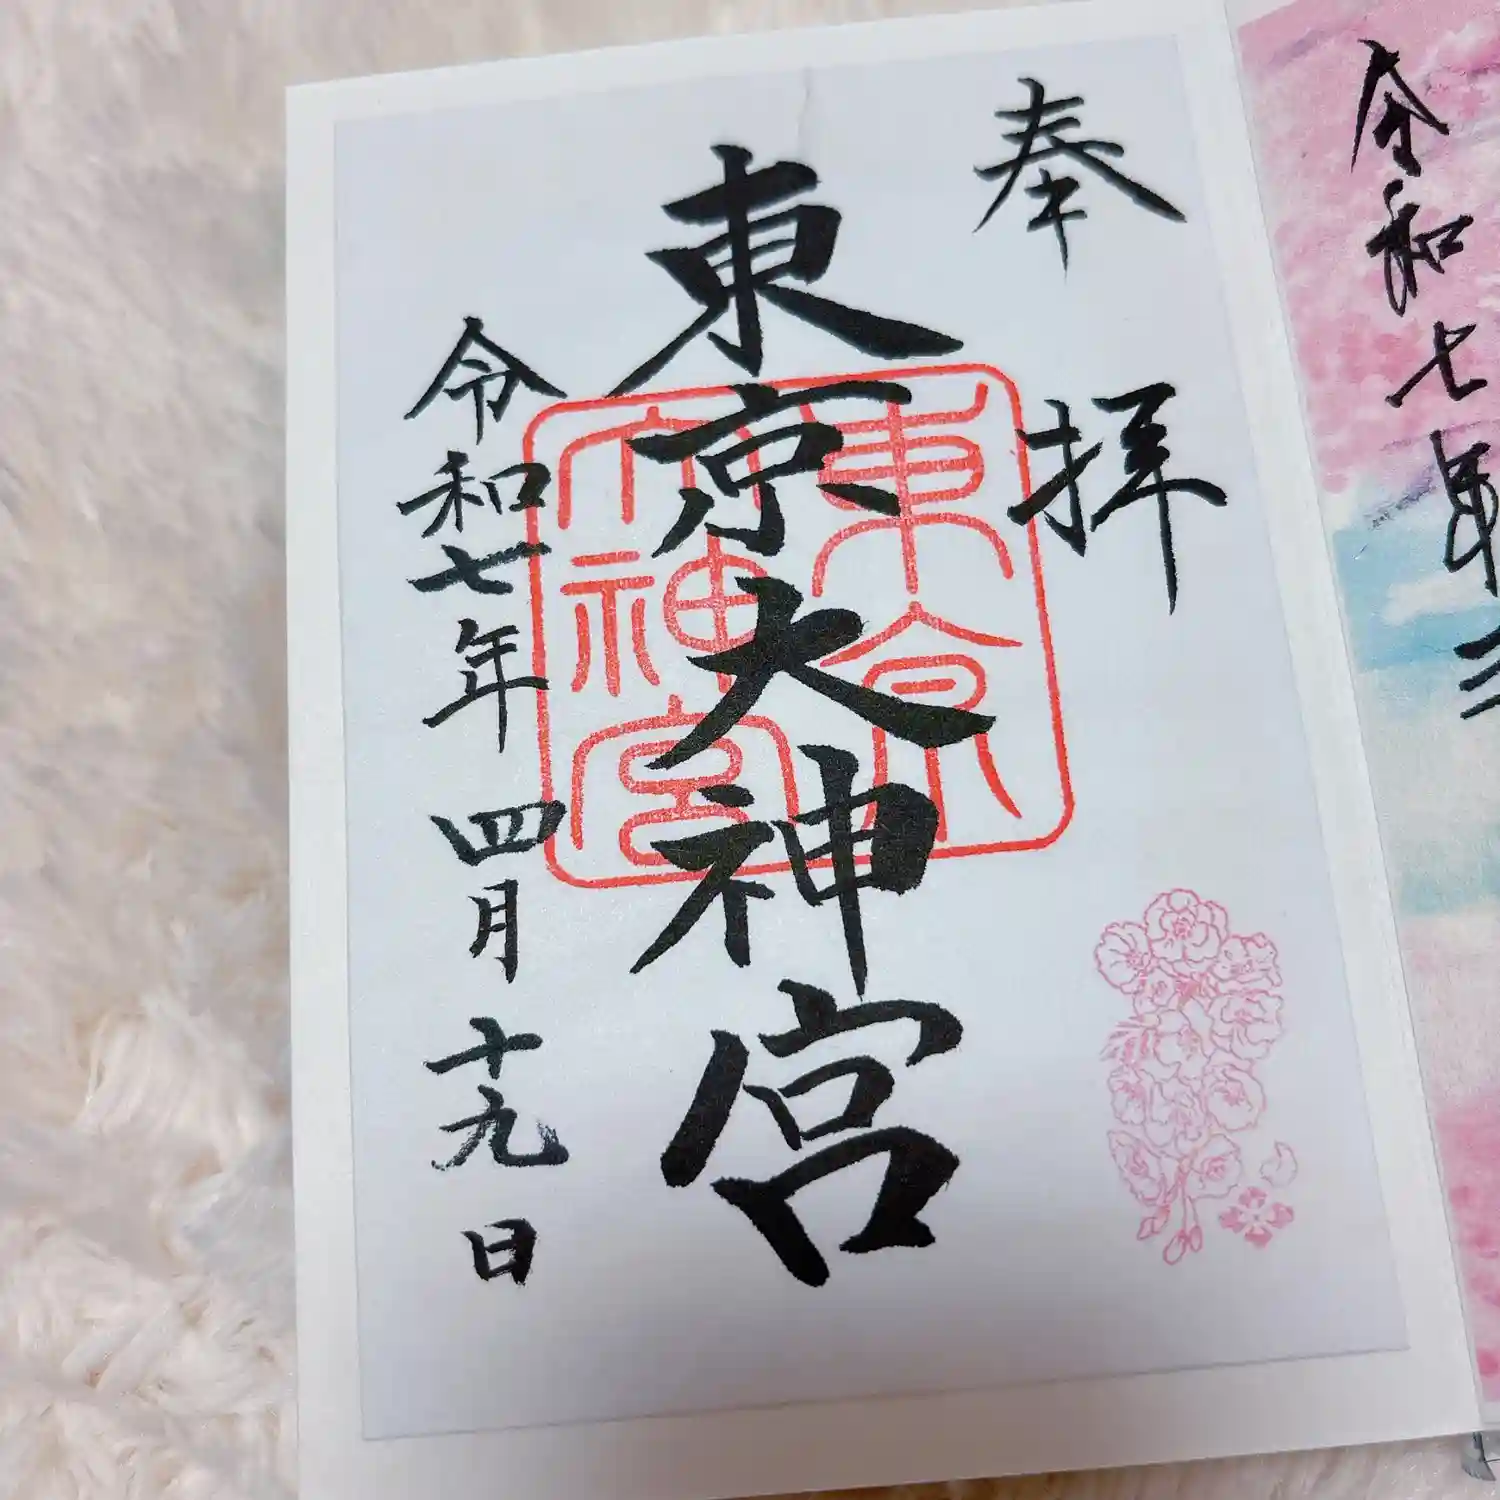 令和七年三
奉拝
東京大神宮
東京
大神宮
令和七年四月十九日